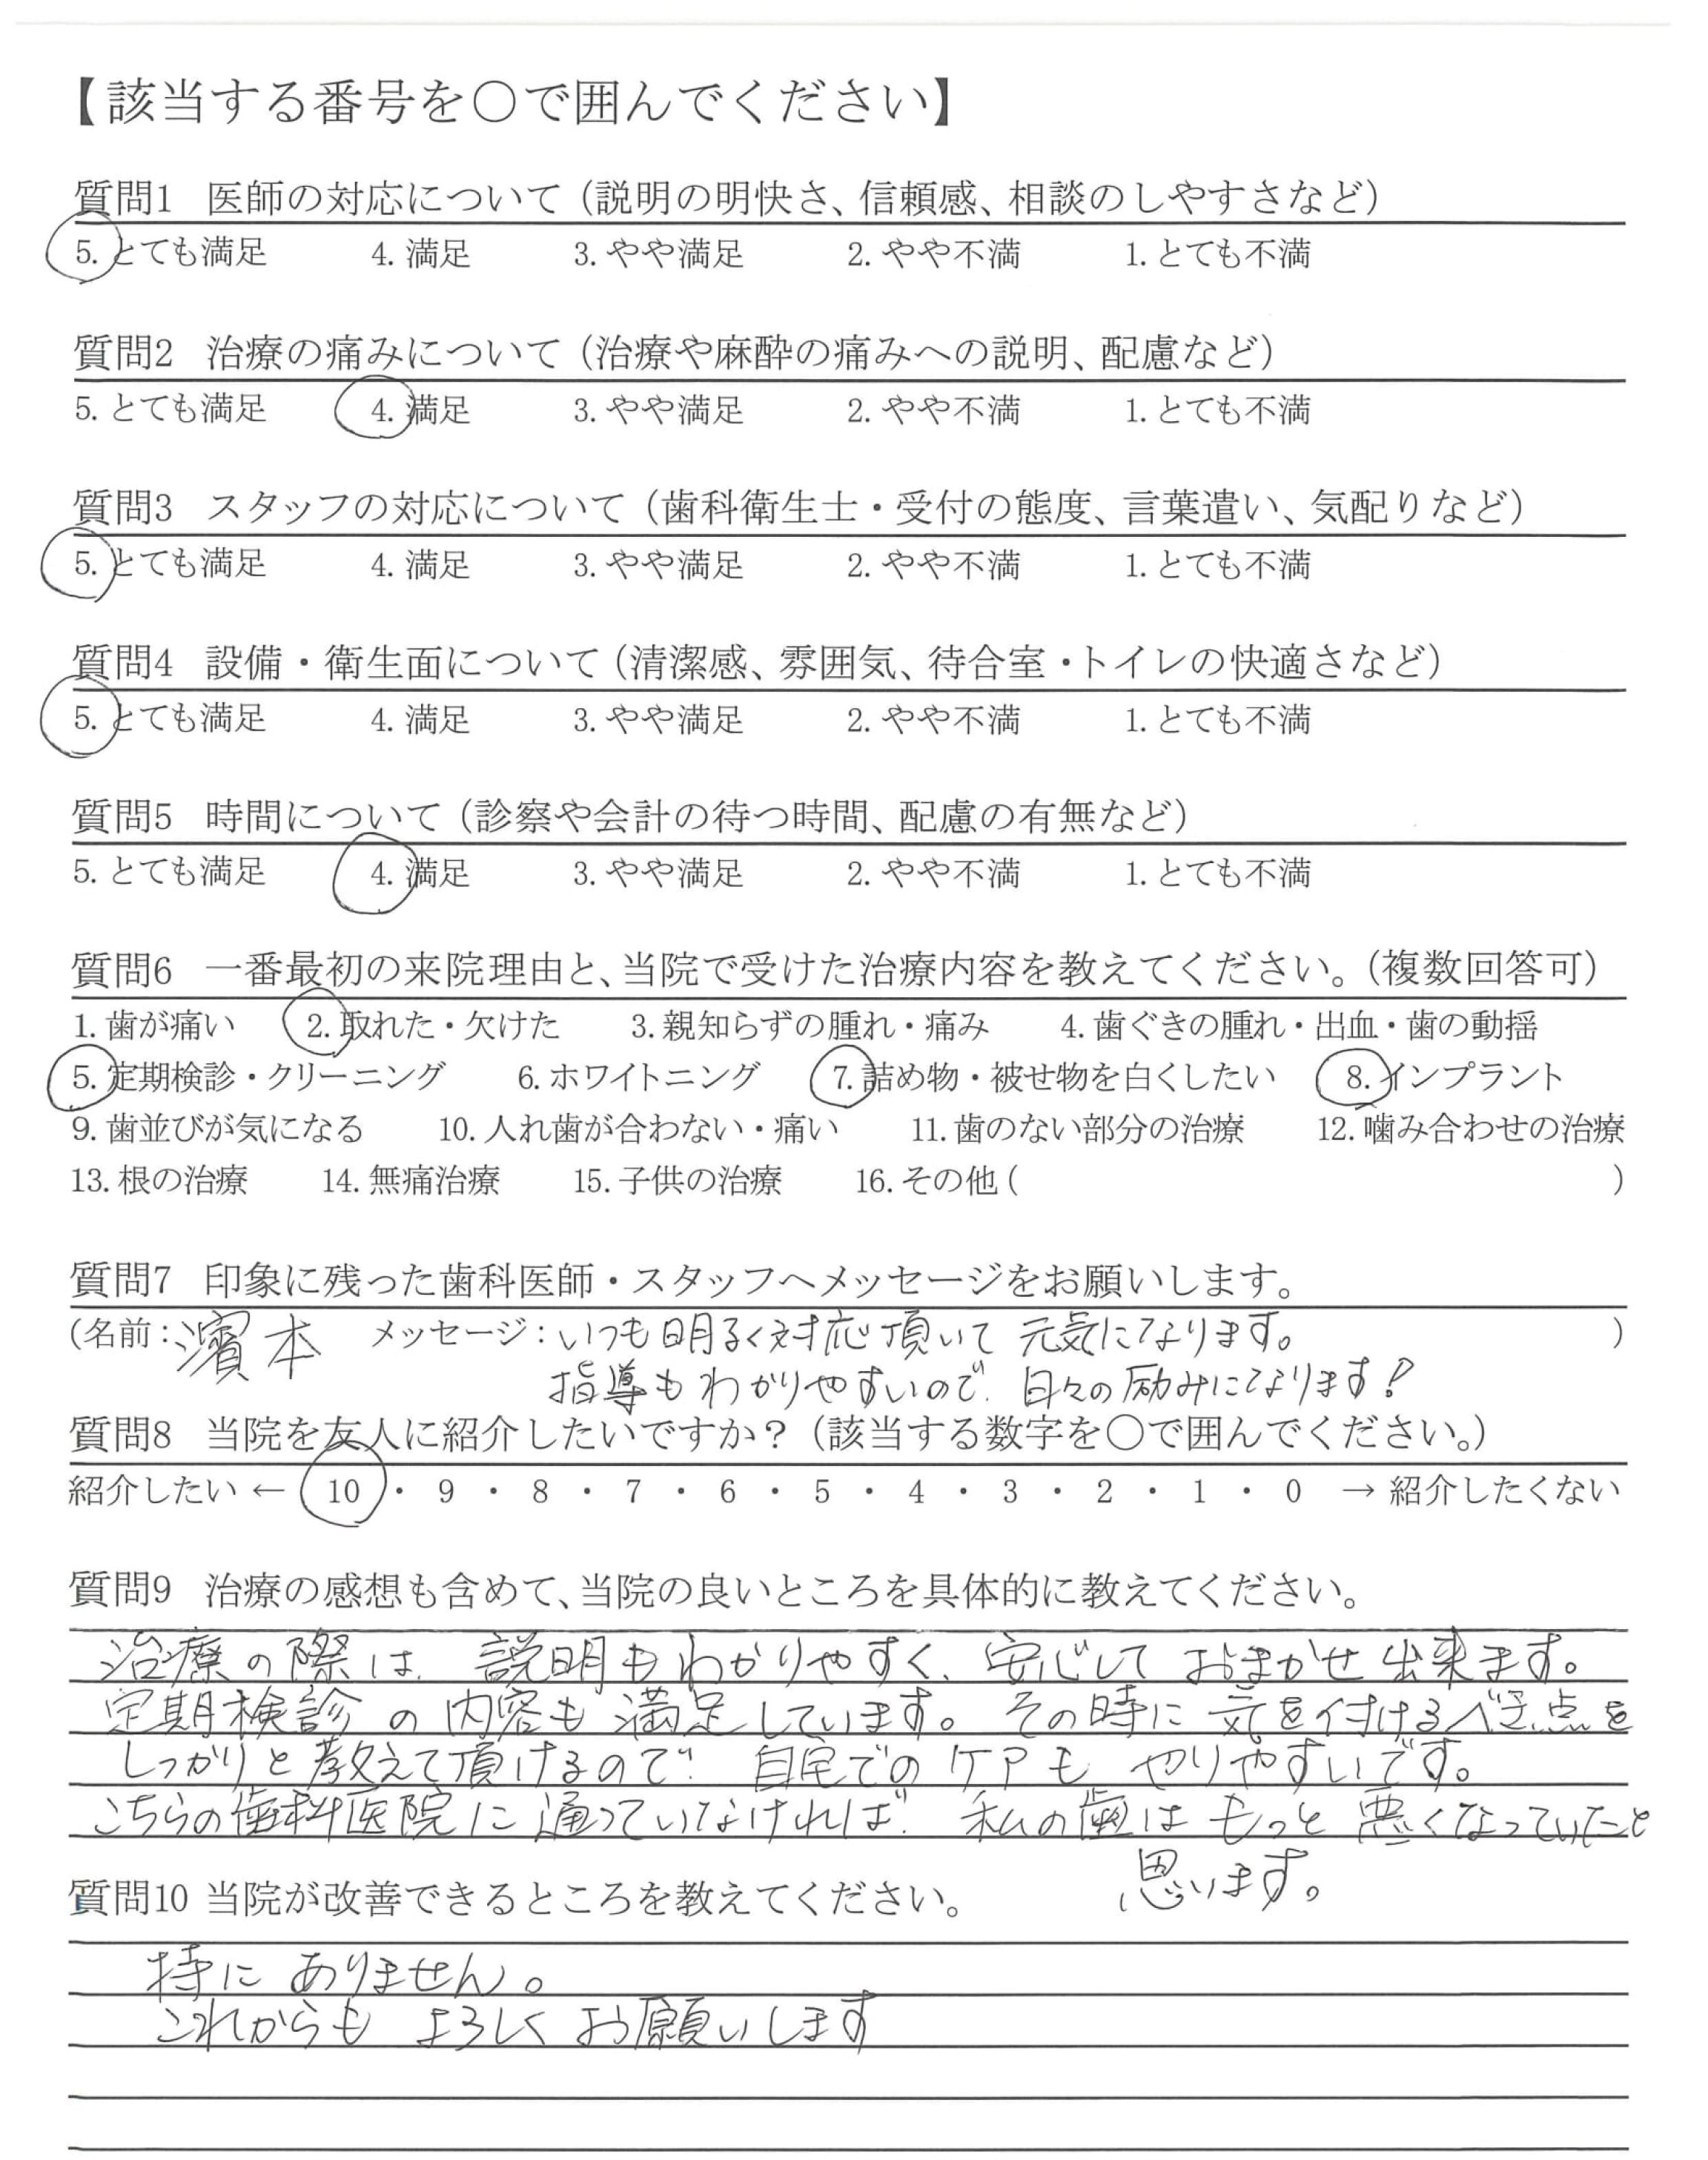 【該当する番号を○で囲んでください】
質問1 医師の対応について（説明の明快さ、信頼感、相談のしやすさなど）
5. とても満足 4. 満足 3. やや満足 2. やや不満 1. とても不満
質問2 治療の痛みについて（治療や麻酔の痛みへの説明、配慮など）
5. とても満足 4. 満足 3. やや満足 2. やや不満 1. とても不満
質問3 スタッフの対応について（歯科衛生士・受付の態度、言葉遣い、気配りなど）
5. とても満足 4. 満足 3. やや満足 2. やや不満 1. とても不満
質問4 設備・衛生面について（清潔感、雰囲気、待合室・トイレの快適さなど）
5. とても満足 4. 満足 3. やや満足 2. やや不満 1. とても不満
質問5 時間について（診察や会計の待つ時間、配慮の有無など）
5. とても満足 4. 満足 3. やや満足 2. やや不満 1. とても不満
質問6 一番最初の来院理由と、当院で受けた治療内容を教えてください。（複数回答可）
1. 歯が痛い 2. 取れた・欠けた 3. 親知らずの腫れ・痛み 4. 歯ぐきの腫れ・出血・歯の動揺
5. 定期検診・クリーニング 6. ホワイトニング 7. 詰め物・被せ物を白くしたい 8. インプラント
9. 歯並びが気になる 10. 入れ歯が合わない・痛い 11. 歯のない部分の治療 12. 噛み合わせの治療
13. 根の治療 14. 無痛治療 15. 子供の治療 16. その他 ( )
質問7 印象に残った歯科医師・スタッフへメッセージをお願いします。
(名前：濱本 メッセージ：いつも明るく対応頂いて 元気になります。 )
指導もわかりやすいので、日々の励みになります！
質問8 当院を友人に紹介したいですか？（該当する数字を○で囲んでください。）
紹介したい ← 10 ・ 9 ・ 8 ・ 7 ・ 6 ・ 5 ・ 4 ・ 3 ・ 2 ・ 1 ・ 0 → 紹介したくない
質問9 治療の感想も含めて、当院の良いところを具体的に教えてください。
治療の際は、説明もわかりやすく、安心して おまかせ 出来ます。
定期検診の内容も満足しています。その時に気を付けるべき点を
しっかりと教えて頂けるので 自宅でのケアも やりやすいです。
こちらの歯科医院に通っていなければ 私の歯は もっと 悪くなっていたと
思います。
質問10 当院が改善できるところを教えてください。
特に ありません。
これからも よろしく お願いします